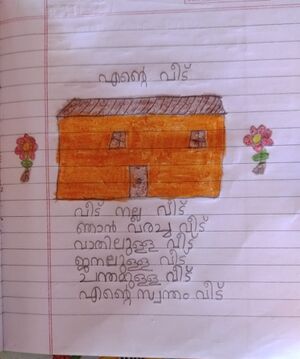 എന്റെ വീട്
വീട് നല്ല വീട്
ഞാൻ വരച്ച വീട്
വാതിലുള്ള വീട്
ജനലുള്ള വീട്
ചന്തമുള്ള വീട്
എന്റെ സ്വന്തം വീട്